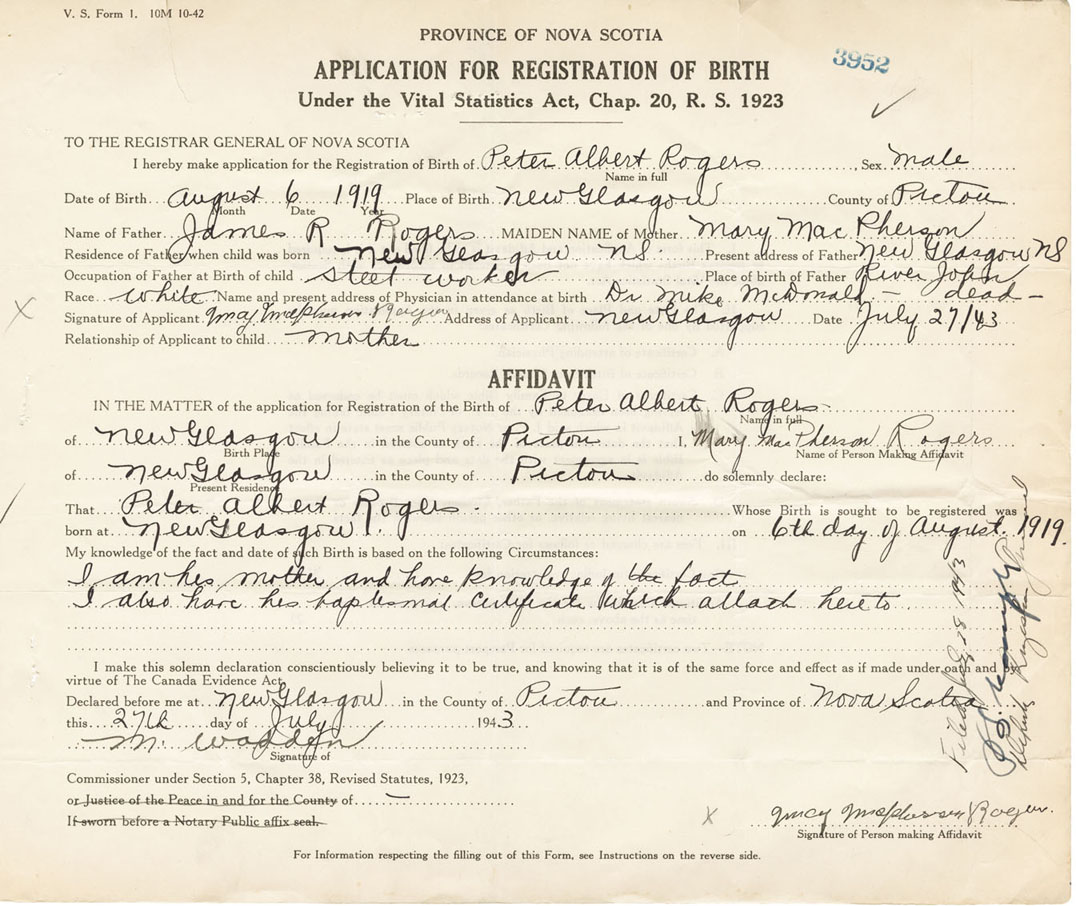 V. S. Form 1. 10M 10-42
PROVINCE OF NOVA SCOTIA
3952
APPLICATION FOR REGISTRATION OF BIRTH
Under the Vital Statistics Act, Chap. 20, R. S. 1923
TO THE REGISTRAR GENERAL OF NOVA SCOTIA
I hereby make application for the Registration of Birth of Peter Albert Rogers Sex male
Name in full
Date of Birth August 6 1919 Place of Birth New Glasgow County of Pictou
Month Date Year
Name of Father James R Rogers MAIDEN NAME of Mother Mary Mac Pherson
Residence of Father when child was born New Glasgow NS Present address of Father New Glasgow NS
Occupation of Father at Birth of child steel worker Place of birth of Father River John
Race white Name and present address of Physician in attendance at birth Dr Mike McDonald - dead -
Signature of Applicant Mary Macpherson Rogers Address of Applicant New Glasgow Date July 27/43
Relationship of Applicant to child mother
AFFIDAVIT
IN THE MATTER of the application for Registration of the Birth of Peter Albert Rogers
Name in full
of New Glasgow in the County of Pictou I, Mary MacPherson Rogers
Birth Place Name of Person Making Affidavit
of New Glasgow in the County of Pictou do solemnly declare:
Present Residence
That Peter Albert Rogers - Whose Birth is sought to be registered was
born at New Glasgow on 6th day of August 1919.
My knowledge of the fact and date of such Birth is based on the following Circumstances:
I am his mother and have knowledge of the fact
I also have his baptismal certificate which attach hereto
I make this solemn declaration conscientiously believing it to be true, and knowing that it is of the same force and effect as if made under oath and
virtue of The Canada Evidence Act.
Declared before me at New Glasgow in the County of Pictou and Province of Nova Scotia
this 27th day of July 1943
M. Wadden
Signature of
Commissioner under Section 5, Chapter 38, Revised Statutes, 1923,
or Justice of the Peace in and for the County of -
If sworn before a Notary Public affix seal.
Mary Macpherson Rogers
Signature of Person making Affidavit
For Information respecting the filling out of this Form, see Instructions on the reverse side.
Filed July 28 1943
Deputy Registrar General